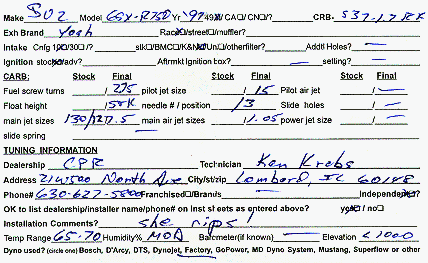 Make SUZ Model GSX-R750 Yr '97 49 CA CN /? CRB- S37-1.7 RK
Exh Brand Yosh Race /street /muffler?
Intake Cnfg 1 30 /? slk /BMC /K&N Un /otherfilter? Addtl Holes? —
Ignition stock /ready? Aftrmkt Ignition box? setting? —
CARB: Stock Final Stock Final
Fuel screw turns / 2.75 pilot jet size / 15 Pilot air jet —
Float height / Stk needle # / position / 3 Slide holes —
main jet sizes 130/127.5 main air jet sizes / 1.05 power jet size —
slide spring
TUNING INFORMATION
Dealership CPR Technician Ken Krebs
Address 21W500 North Ave City/st/zip Lombard, IL 60148
Phone# 630-627-5800 Franchised /Brands Independent?
OK to list dealership/installer name/phone# on inst sheets as entered above? yes / no
Installation Comments? she rips!
Temp Range 65-70 Humidity% MOD Barometer(if known) — Elevation <1000
Dyno used? (circle one) Bosch, D'Arcy, DTS, Dynojet, Factory, GoPower, MD Dyno System, Mustang, Superflow or other